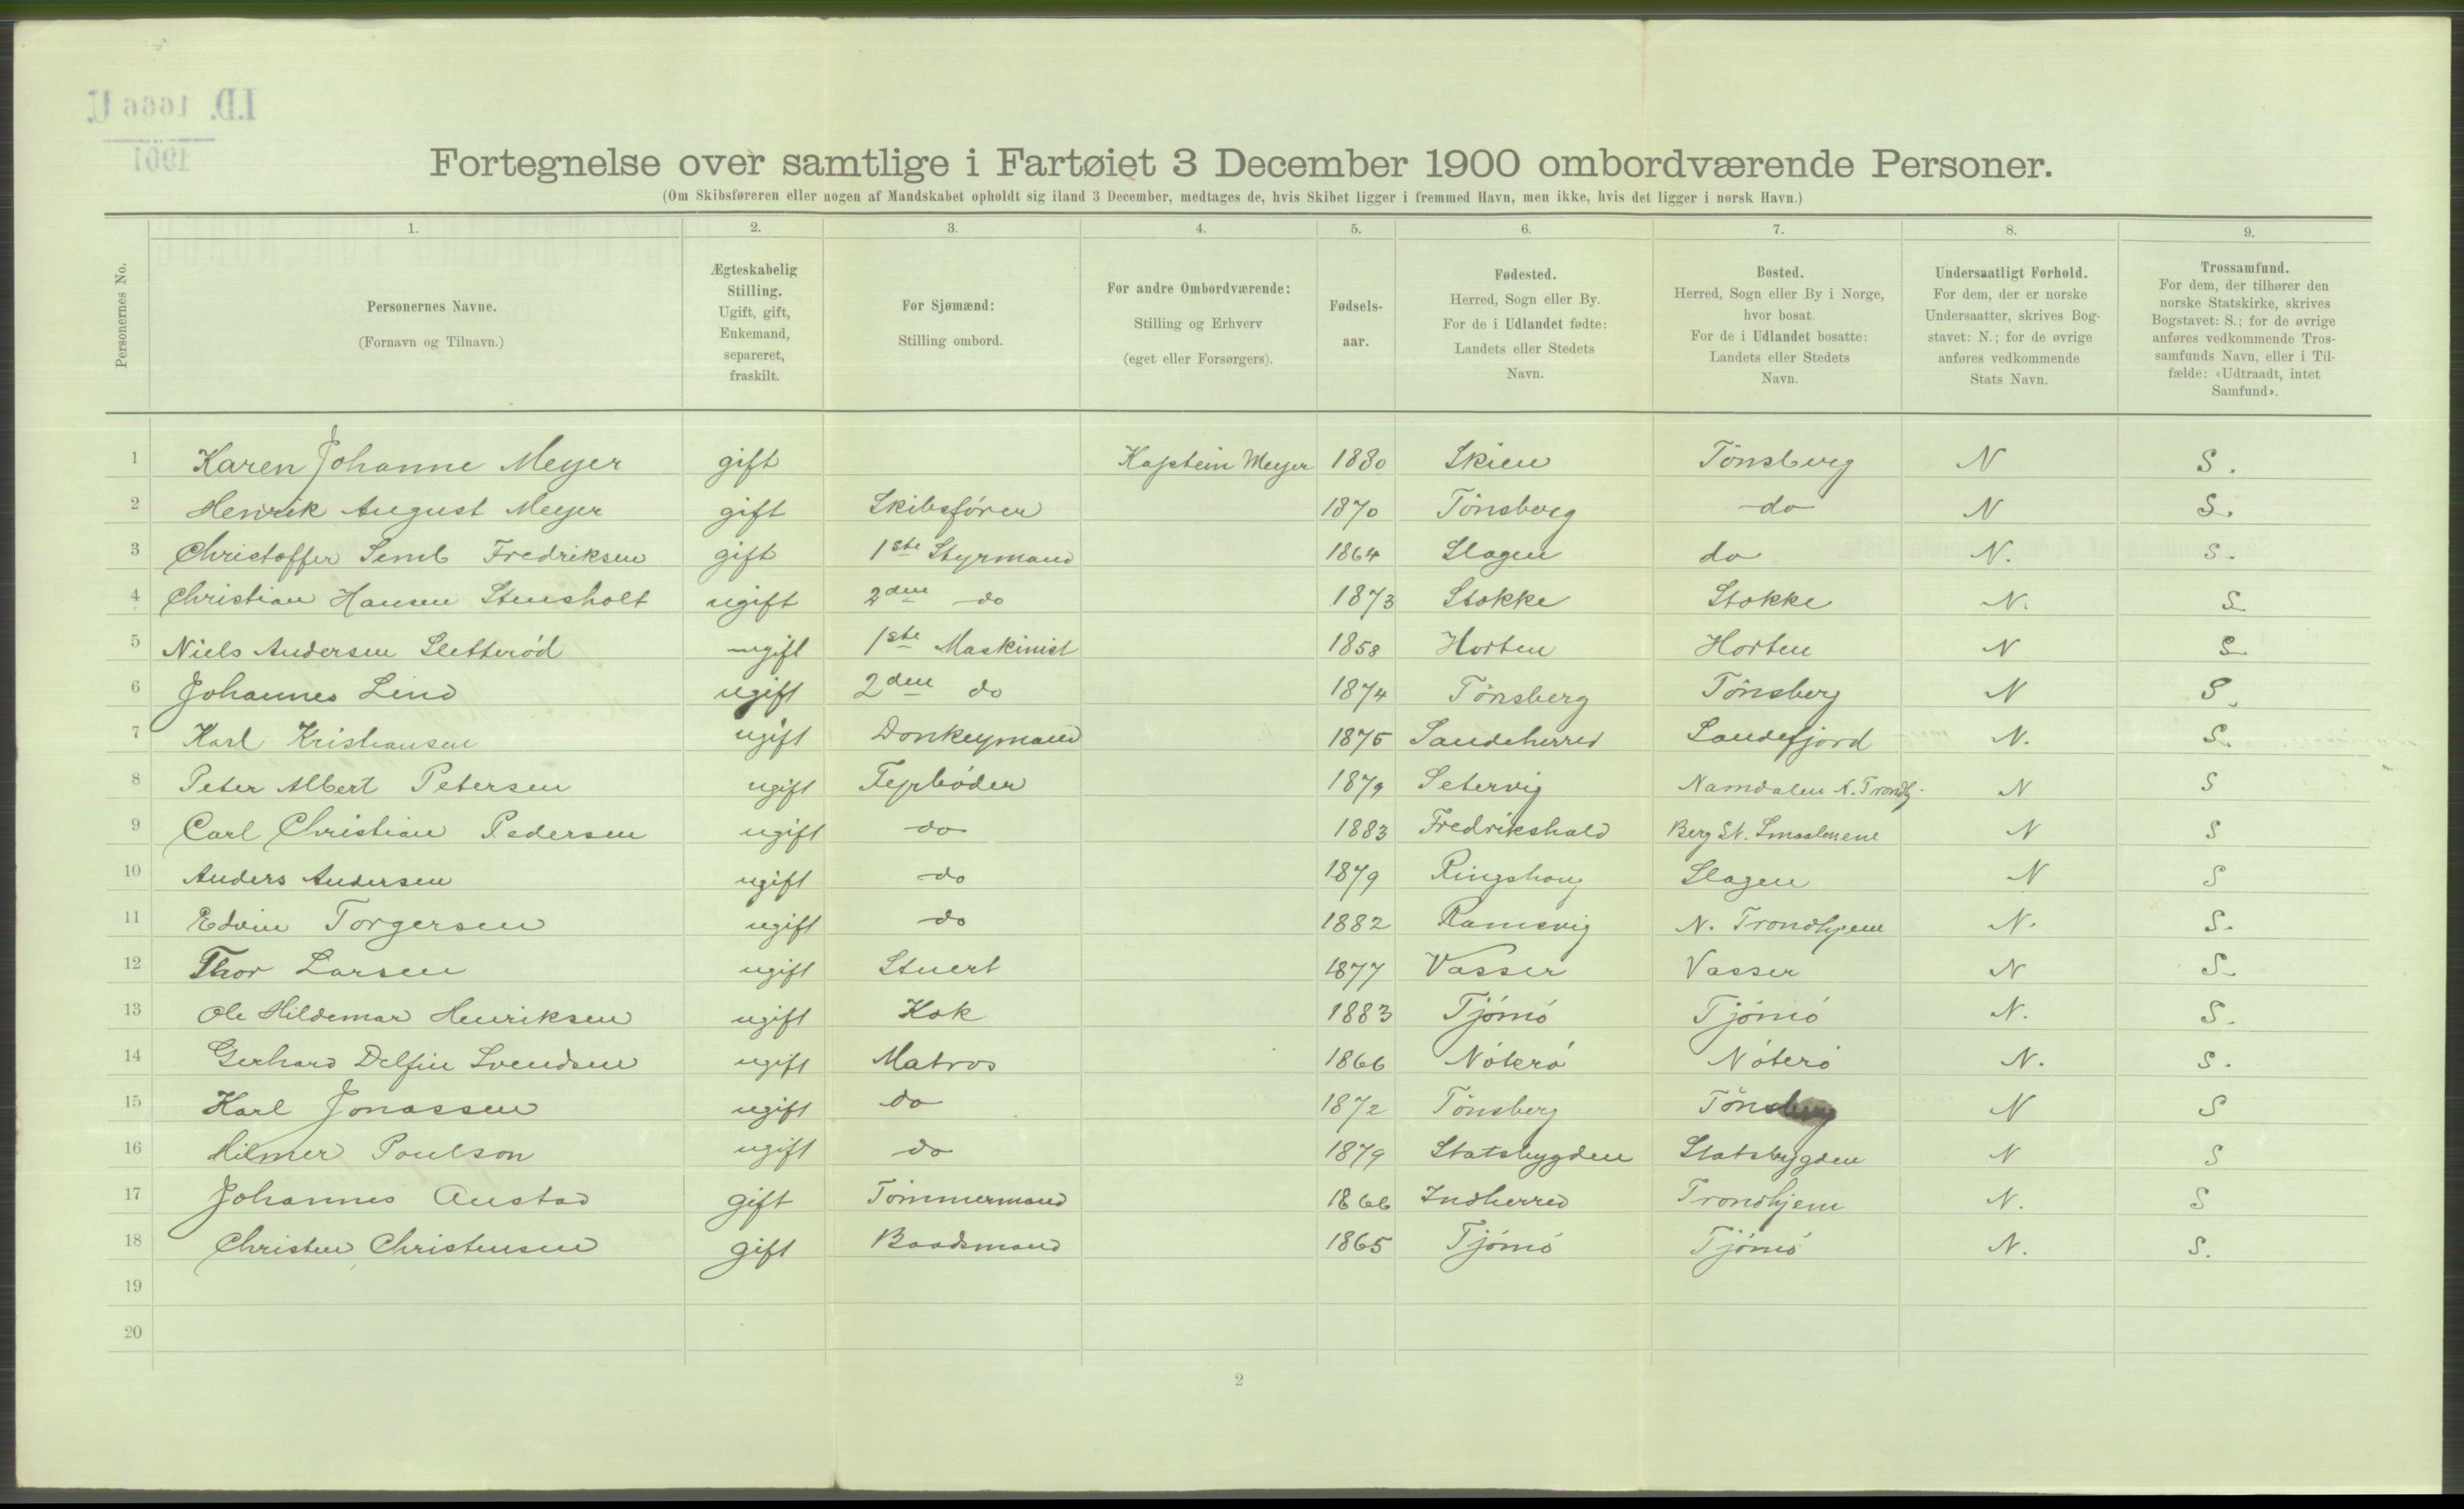 I.D. 1666 U.
1901
Fortegnelse over samtlige i Fartøiet 3 December 1900 ombordværende Personer.
(Om Skibsføreren eller nogen af Mandskabet opholdt sig iland 3 December, medtages de, hvis Skibet ligger i fremmed Havn, men ikke, hvis det ligger i norsk Havn.)
Personernes No.
1. 2. 3. 4. 5. 6. 7. 8. 9.
Personernes Navne.
(Fornavn og Tilnavn.)
Ægteskabelig
Stilling.
Ugift, gift,
Enkemand,
separeret,
fraskilt.
For Sjømænd:
Stilling ombord.
For andre Ombordværende:
Stilling og Erhverv
(eget eller Forsørgers).
Fødsels-
aar.
Fødested.
Herred, Sogn eller By.
For de i Udlandet fødte:
Landets eller Stedets
Navn.
Bosted.
Herred, Sogn eller By i Norge,
hvor bosat.
For de i Udlandet bosatte:
Landets eller Stedets
Navn.
Undersaatligt Forhold.
For dem, der er norske
Undersaatter, skrives Bog-
stavet: N.; for de øvrige
anføres vedkommende
Stats Navn.
Trossamfund.
For dem, der tilhører den
norske Statskirke, skrives
Bogstavet: S.; for de øvrige
anføres vedkommende Tros-
samfunds Navn, eller i Til-
fælde: «Udtraadt, intet
Samfund».
1 Karen Johanne Meyer gift Kaptein Meyer 1880 Skien Tönsberg N S.
2 Henrik August Meyer gift Skibsfórer 1870 Tönsberg do N S.
3 Christoffer Semb Fredriksen gift 1ste Styrmand 1864 Slagen do N. S.
4 Christian Hansen Stensholt ugift 2den do 1873 Stokke Stokke N. S
5 Niels Andersen Sletteród ugift 1ste Maskinist 1858 Horten Horten N S
6 Johannes Lind ugift 2den do 1874 Tönsberg Tönsberg N S.
7 Karl Kristiansen ugift Donkeymand 1875 Sandeherred Sandefjord N. S.
8 Peter Albert Petersen ugift Fyrbóder 1879 Setervig Namdalen N. Trondhj. N S
9 Carl Christian Pedersen ugift do 1883 Fredrikshald Berg St. Smaalnene N S
10 Anders Andersen ugift do 1879 Ringshaug Slagen N S
11 Edvin Torgersen ugift do 1882 Ramsvig N. Trondhjem N. S.
12 Thor Larsen ugift Stuert 1877 Vasser Vasser N S.
13 Ole Hildemar Henriksen ugift Kok 1883 Tjómó Tjómó N. S.
14 Gerhard Delfin Svendsen ugift Matros 1866 Nóteró Nóteró N. S.
15 Karl Jonassen ugift do 1872 Tönsberg Tönsberg N S
16 Hilmer Poulson ugift do 1879 Statsbygden Statsbygden N S
17 Johannes Austad gift Tömmermand 1866 Indherred Trondhjem N. S
18 Christen Christensen gift Baadsmand 1865 Tjómó Tjómó N. S.
19
20
2